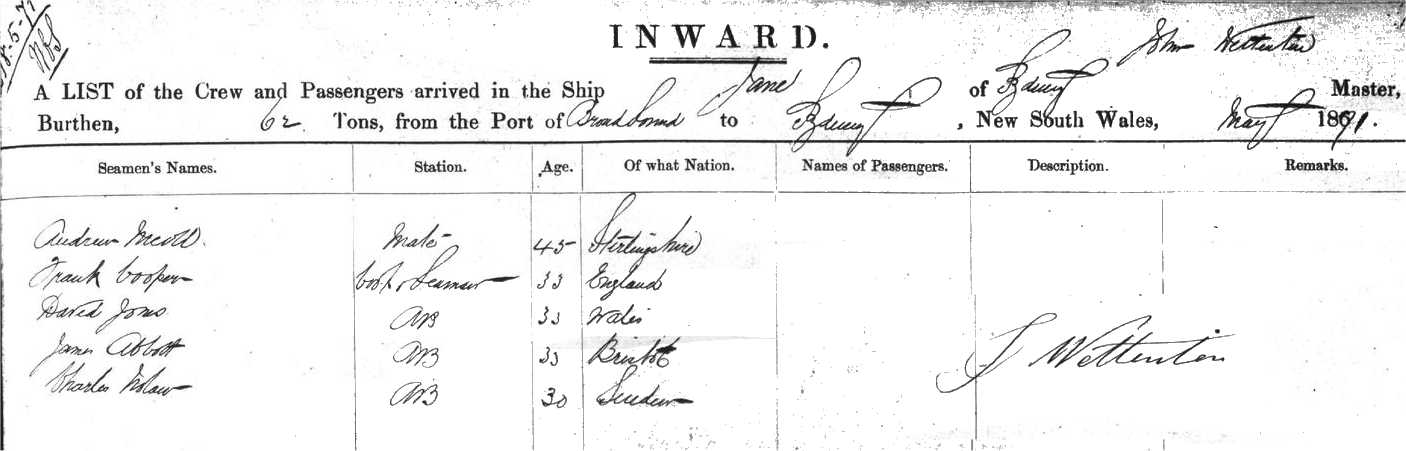 18-5-71
INWARD.
John Wettenton
A LIST of the Crew and Passengers arrived in the Ship Jane of Sydney Master,
Burthen, 62 Tons, from the Port of Broad Sound to Sydney, New South Wales, May 1871.
Seamen's Names. Station. Age. Of what Nation. Names of Passengers. Description. Remarks.
Andrew Mate 45 Stirlingshire
Frank Cooper Cook & Seaman 33 England
David Jones AB 33 Wales
James Abbott AB 33 Bristol
Charles AB 30
J Wettenton